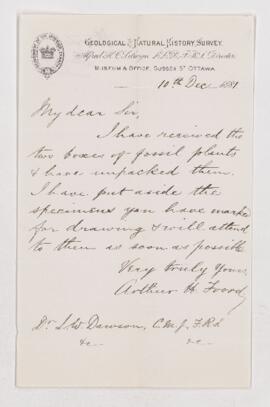 GEOLOGICAL & NATURAL HISTORY SURVEY.
Alfred R. C. Selwyn, L.L.D., F.R.S., Director.
MUSEUM & OFFICE, SUSSEX ST OTTAWA.
10th Dec 1881
My dear Sir,
I have received the
two boxes of fossil plants
& have unpacked them.
I have put aside the
specimens you have marked
for drawing & will attend
to them as soon as possible
Very truly Yours,
Arthur H. Foord
Dr J. W Dawson, C.M.G., F.R.S.
&c &c